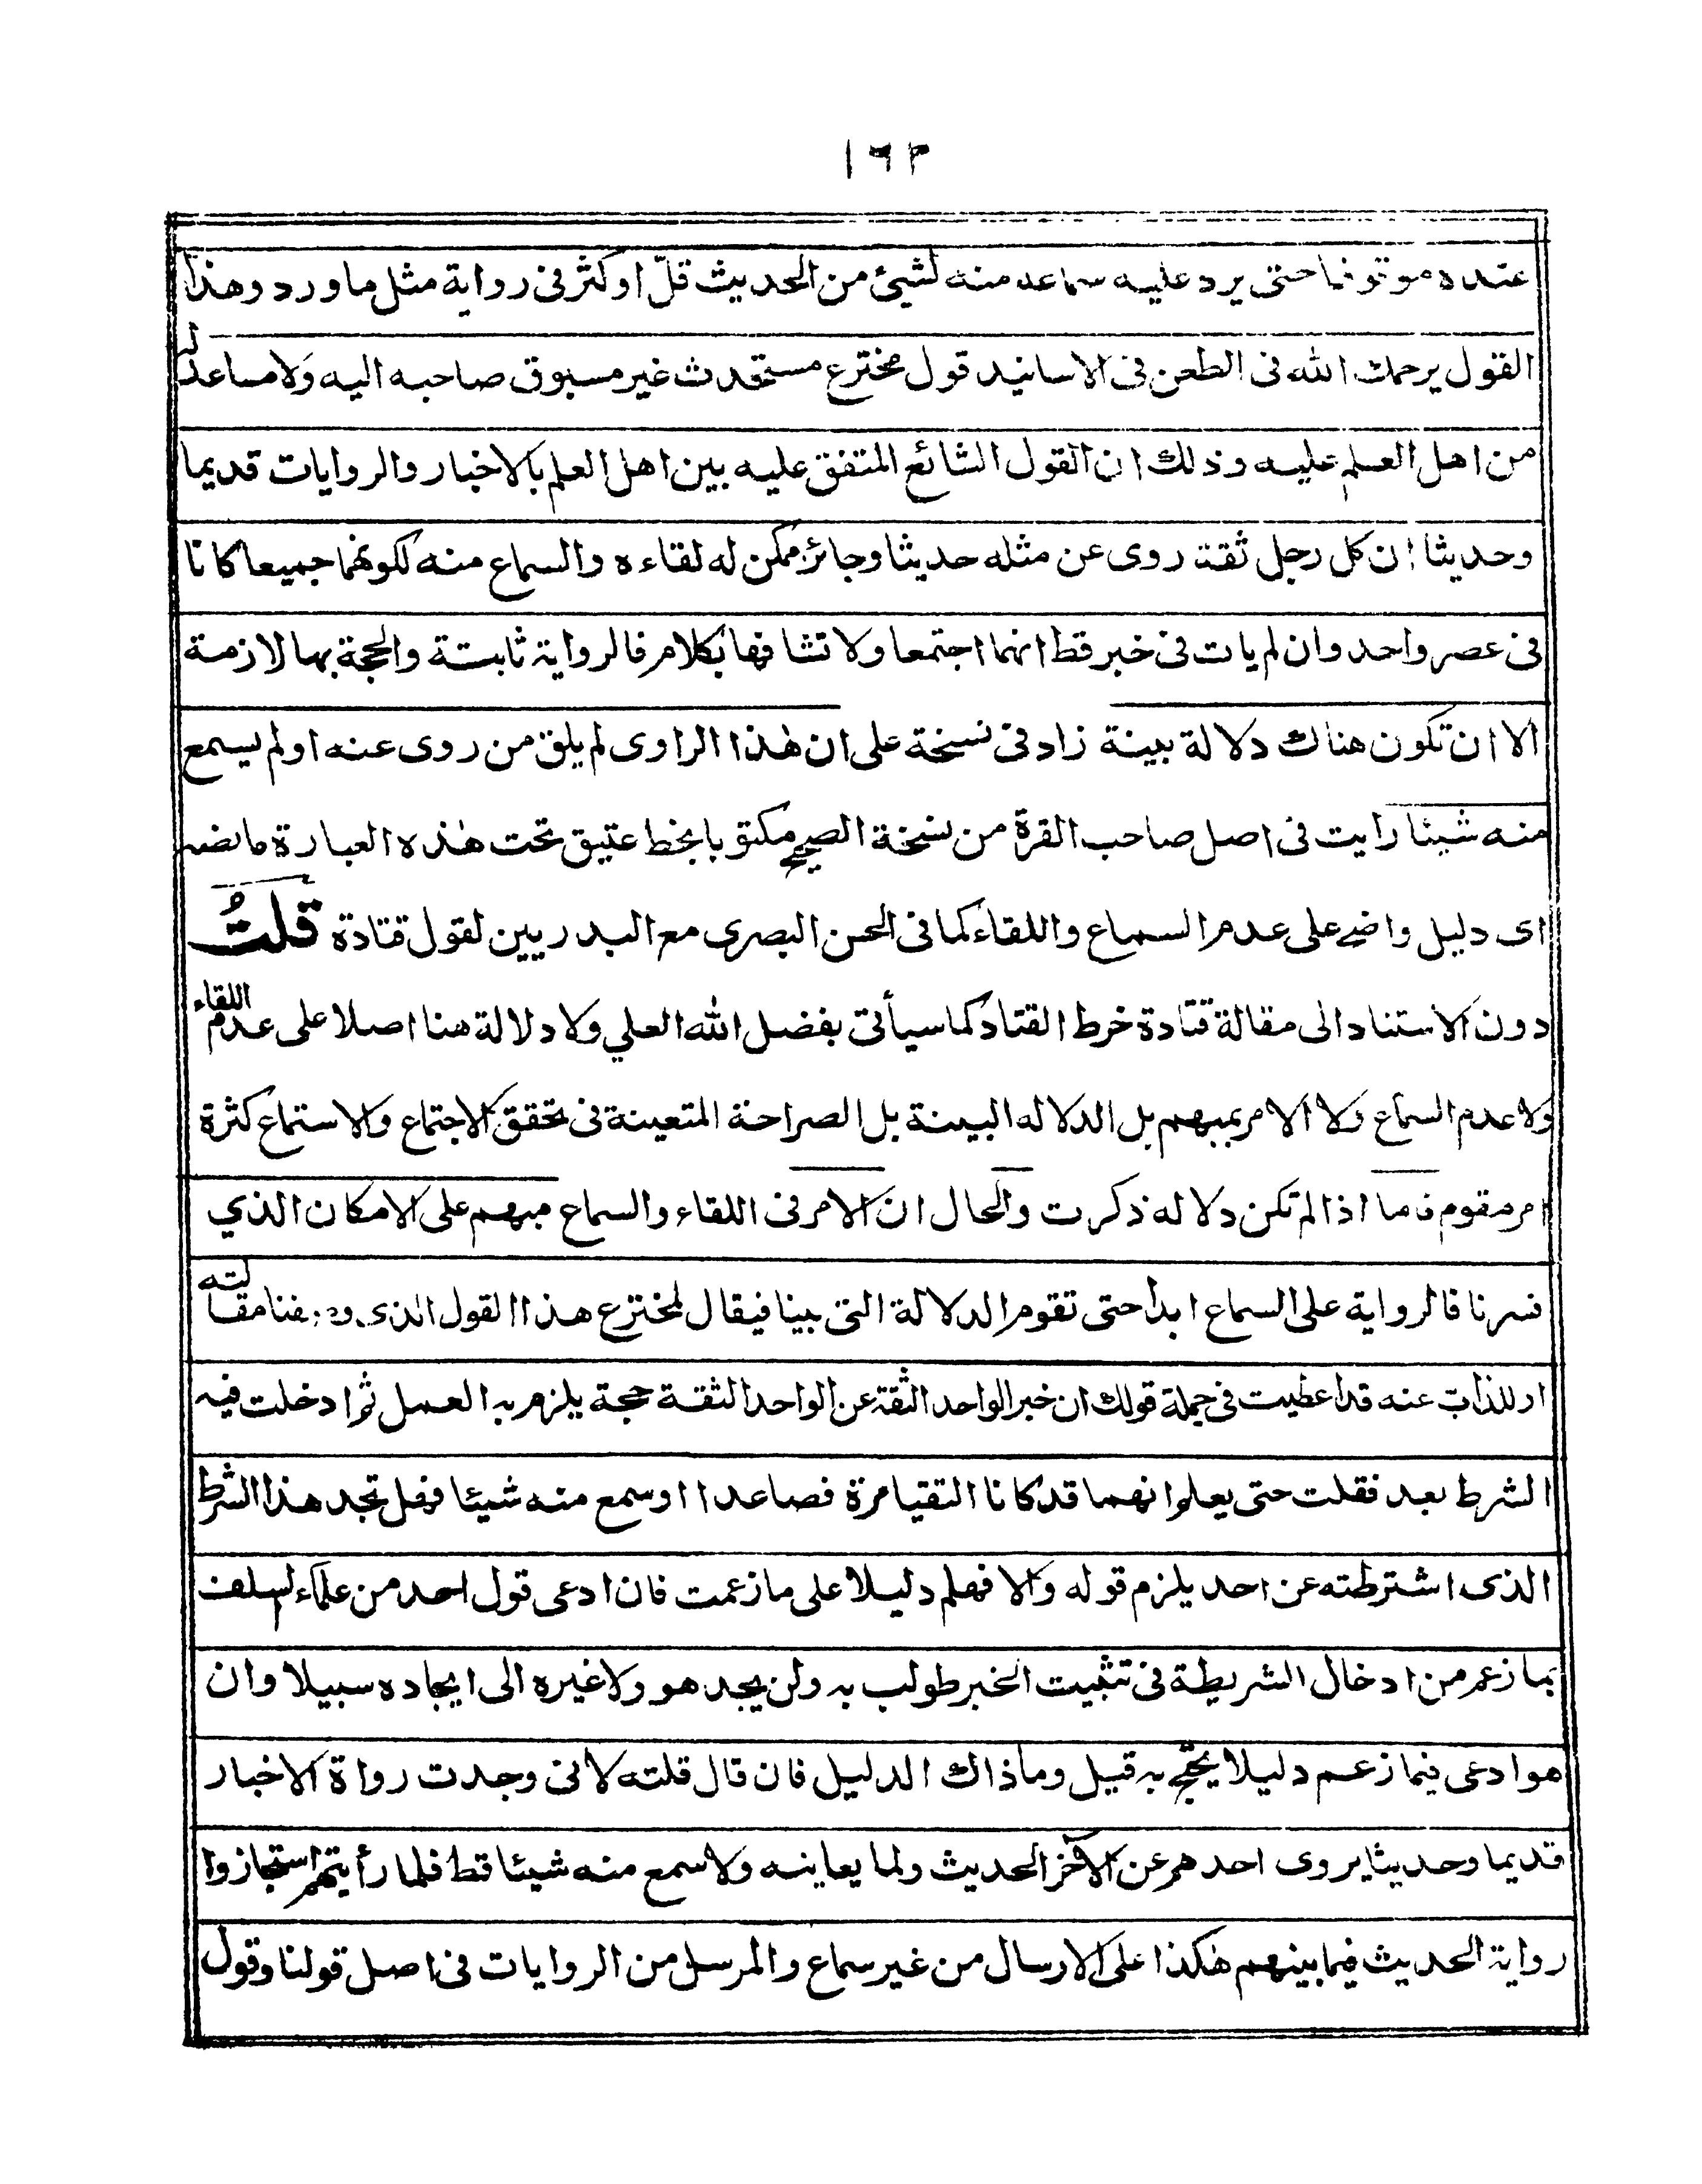 ١٦٣
عنده موقوفا حتى يرد عليه سماعه منه لشيئ من الحديث قلّ اوكثر فى رواية مثل ما ورد وهذا
القول يرحمك الله فى الطعن فى الاسانيد قول مخترع مستحدث غير مسبوق صاحبه اليه ولا مساعد له
من اهل العلم عليه وذلك ان القول الشائع المتفق عليه بين اهل العلم بالاخبار والروايات قديما
وحديثا ان كل رجل ثقة روى عن مثله حديثا وجائز ممكن له لقاءه والسماع منه لكونهما جميعا كانا
فى عصر واحد وان لم يات فى خبر قط انهما اجتمعا ولا تشافها بكلام فالرواية ثابستة والحجة بها لازمة
الا ان تكون هناك دلالة بينة زاد فى نسخة على ان هٰذا الراوى لم يلق من روى عنه اولم يسمع
منه شيئا رايت فى اصل صاحب القرة من نسخة الصحيح مكتوبا بخط عتيق تحت هٰذه العبارة ما نصه
اى دليل واضح على عدم السماع واللقاء كما فى الحسن البصرى مع البدريين لقول قتادة قلتُ
دون الاستناد الى مقالة قتادة خرط القتاد كما سيأتى بفضل الله العلي ولا دلالة هنا اصلا على عدم اللقاء
ولا عدم السماع ولا الامر بمبهم بل الدلاله البينة بل الصراحة المتعينة فى تحقق الاجتماع والاستماع كثرة
امر مقوم فاما اذا لم تكن دلاله ذكرت والحال ان الامر فى اللقاء والسماع مبهم على الامكان الذي
فسرنا فالرواية على السماع ابدا حتى تقوم الدلالة التى بينا فيقال لمخترع هذا القول الذى وصفنا مقالته
او للذاب عنه قد اعطيت فى جملة قولك ان خبر الواحد الثقة عن الواحد الثقة حجة يلزم به العمل ثم ادخلت فيه
الشرط بعد فقلت حتى يعلم انهما قد كانا التقيا مرة فصاعدا اوسمع منه شيئا فهل تجد هذا الشرط
الذى اشترطته عن احد يلزم قوله والا فهلم دليلا على ما زعمت فان ادعى قول احد من علماء السلف
بما زعم من ادخال الشريطة فى تثبيت الخبر طولب به ولن يجد هو ولا غيره الى ايجاده سبيلا وان
هو ادعى فيما زعم دليلا يحتج به قيل وما ذاك الدليل فان قال قلته لانى وجدت رواة الاخبار
قديما وحديثا يروى احدهم عن الآخر الحديث ولما يعاينه ولا سمع منه شيئا قط فلما رأيتهم استجازوا
رواية الحديث فيما بينهم هٰكذا على الارسال من غير سماع والمرسل من الروايات فى اصل قولنا وقول